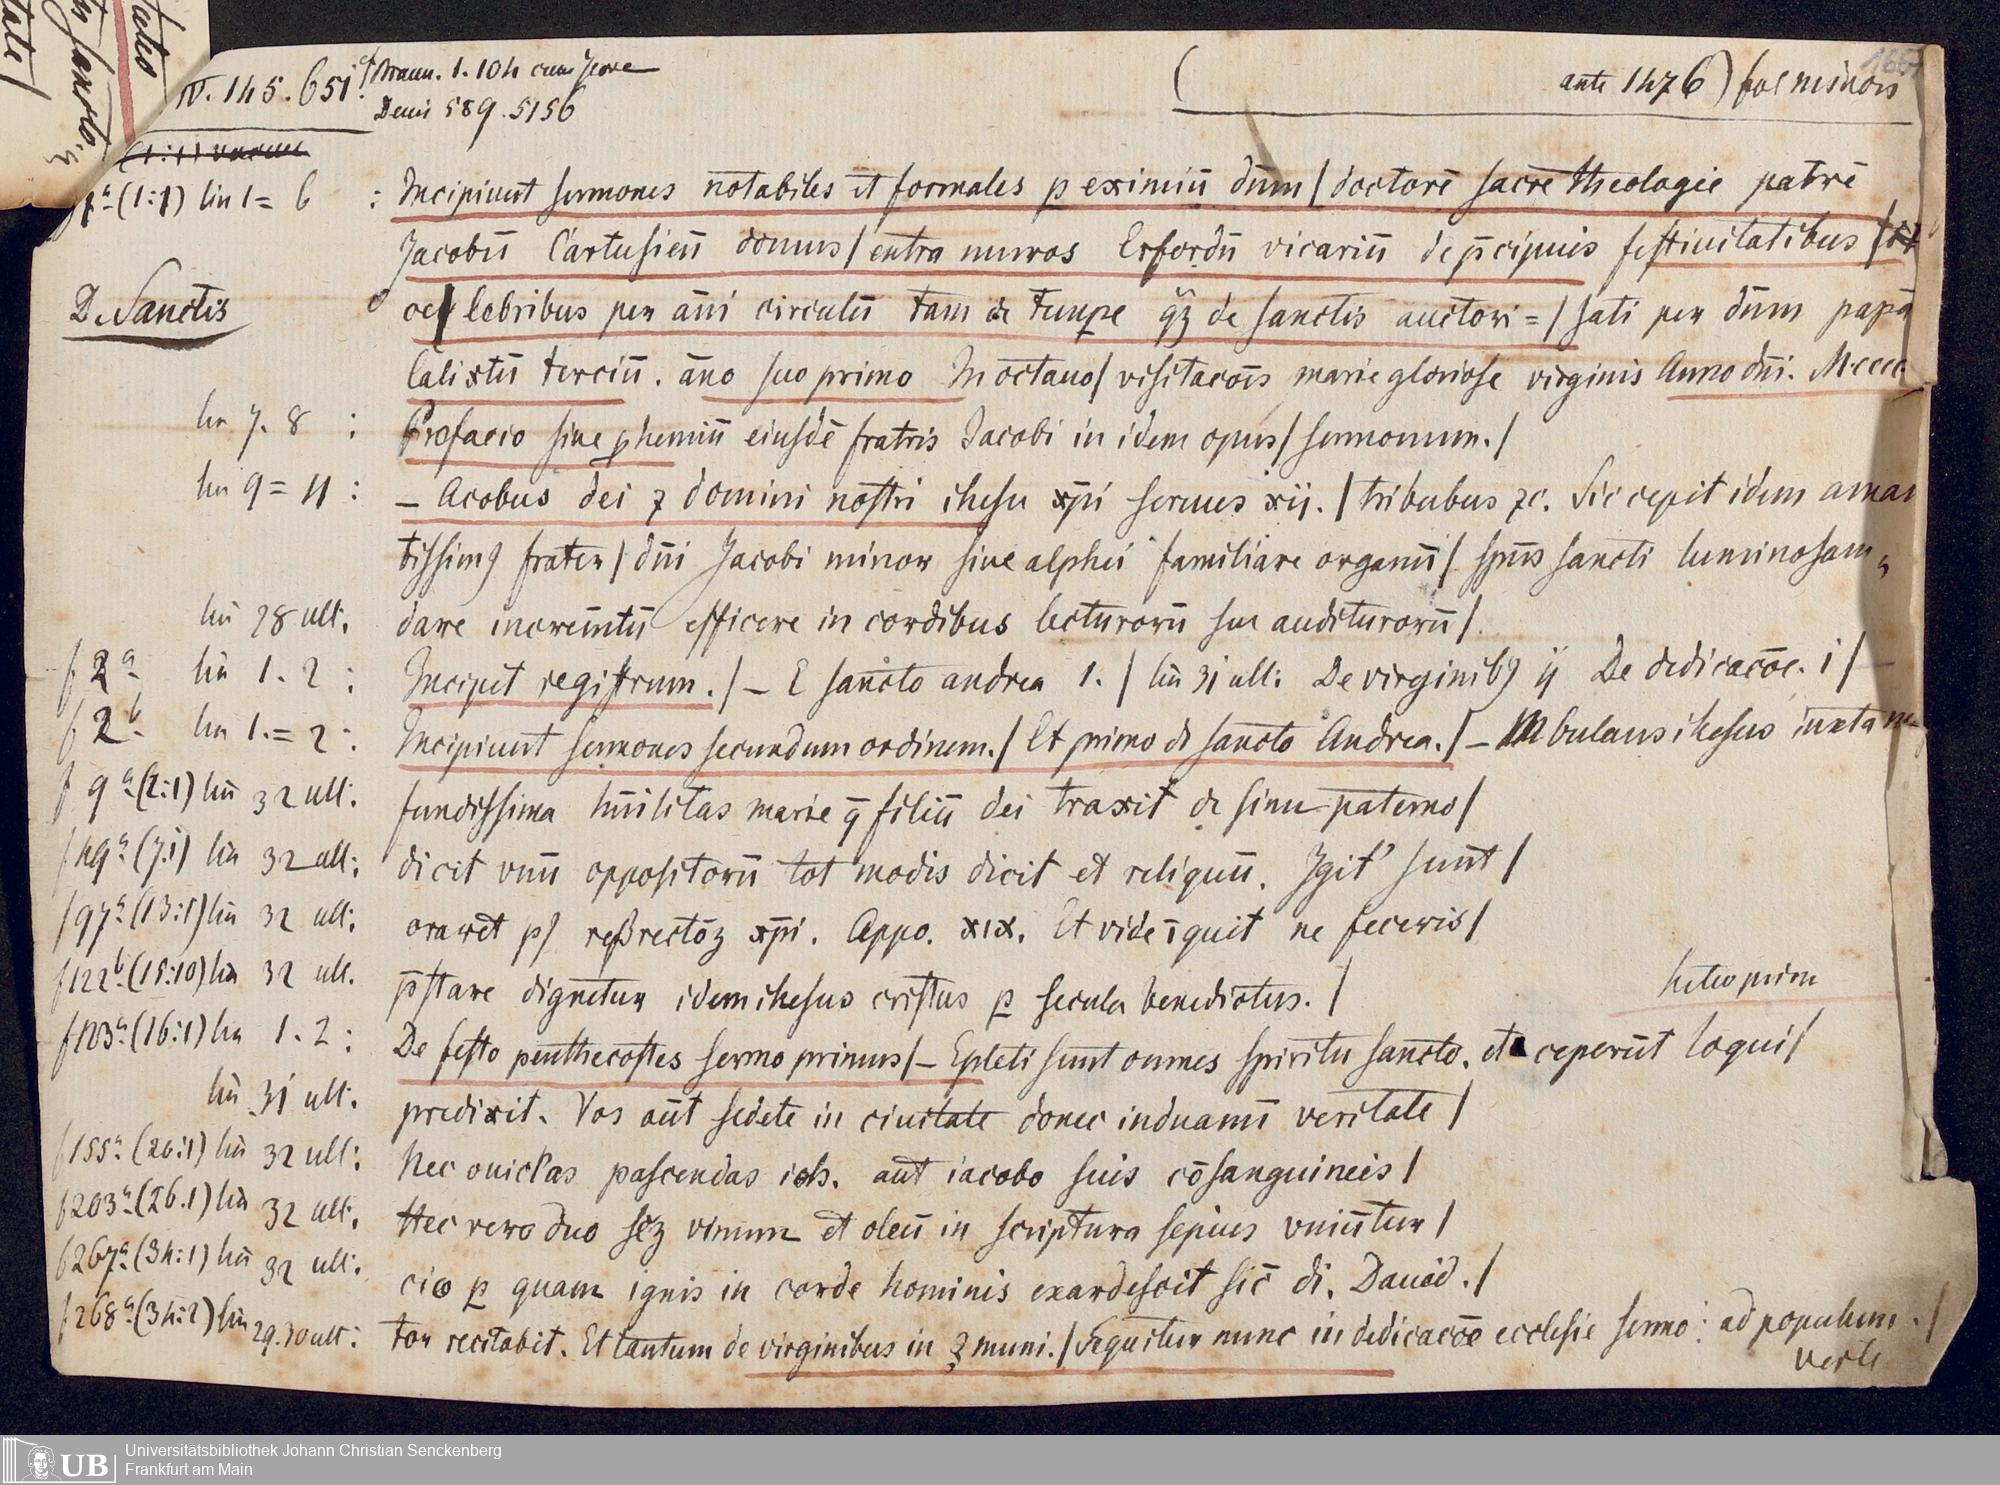 IV. 145. 651.
Braun. 1. 104
Denis 589. 5156
( ante 1476) fol minor
(1:1) lin 1= 6 : Incipiunt sermones notabiles et formales p eximiū dūm / doctorē sacrē theologie patrē
Jacobū Cartusieñ domus / extra muros Erfordñ vicariū de p̄cipuis festiuitatibus /
De Sanctis
celebribus per āni circulū tam de tempe qz de sanctis auctori= / sati per dūm papā
Calixtū terciū. āno suo primo In octaua / visitacoīs marie gloriose virginis Anno dn̄i. M.cccc
lin 7. 8 : Prefacio siue phemiū eiusdē fratris Jacobi in idem opus / sermonum. /
lin 9 = 11 : – Acobus dei z domini nostri ihesu xp̄i seruus xij. / tribubus zc. Sic cepit idem aman
tissimꝯ frater / dn̄i Jacobi minor siue alphei familiare organū / spūs sancti luminosam
lin 28 ult. dare incremtū efficere in cordibus lecturorū seu auditurorū /
f 2a lin 1. 2 : Incipit registrum. / – E sancto andrea 1. / lin 31 ult: De virginibꝯ ij De dedicacōe. i /
f 2b lin 1. = 2 : Incipiunt sermones secundum ordinem. / Et primo de sancto Andrea. / – Mbulans ihesus iuxta m
f 9a (2:1) lin 32 ult: fundissima hūilitas marie q̄ filiū dei traxit de sinu paterno /
f 49a (7:1) lin 32 ult: dicit vnū oppositorū tot modis dicit et reliquū. Igit' sunt /
f 97a (13:1) lin 32 ult: oraret resrectōz xp̄i. Appo. xix. Et vide īquit ne feceris /
f 122b (15:10) lin 32 ult. p̄stare dignetur idem ihesus cristus p secula benedictus. /
f 123a (16:1) lin 1. 2 : De festo penthecostes sermo primus / – Epleti sunt oumes spiritu sancto. et ceperūt loqui /
lin 31 ult: predixit. Vos aūt sedete in ciuitate donec induamī veritate /
f 155a (20:1) lin 32 ult: Nec ouiclas pascendas ioh. aūt iacobo suis cōsanguineis /
f 203a (26.1) lin 32 ult. Hec vero duo scz vinum et oleū in scriptura sepius vniūtur /
f 267a (34:1) lin 32 ult: cio p quam ignis in corde hominis exardescit sic̄ di. Dauid. /
f 268a (34:2) lin 29.30 ult: tor recitabit. Et tantum de virginibus in muni. / Sequitur nunc in dedicacōe ecclesie sermo: ad populum. /
verte
Universitätsbibliothek Johann Christian Senckenberg
UB
Frankfurt am Main